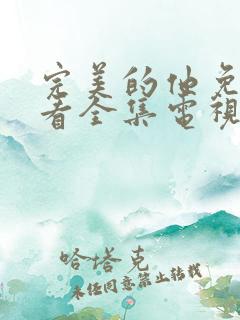 完美的他免
看全集電視
哈塔克
未经同意禁止转载